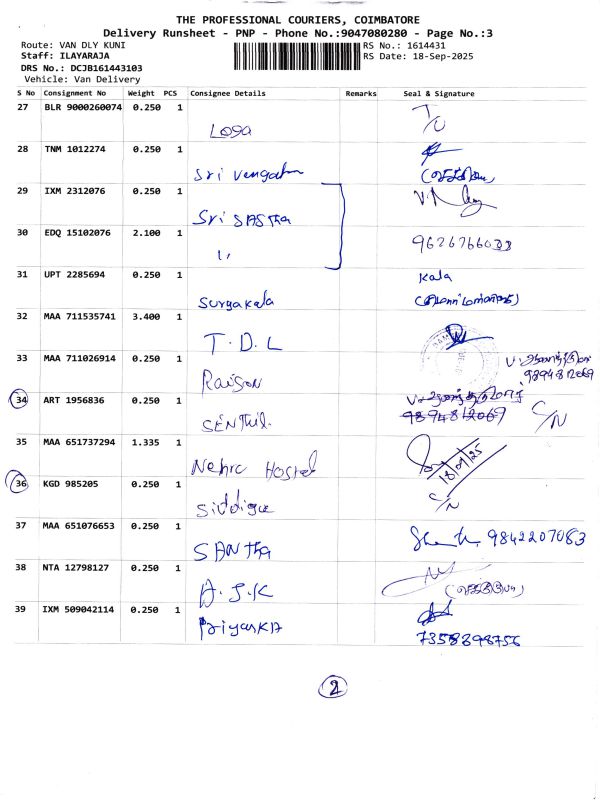 THE PROFESSIONAL COURIERS, COIMBATORE
Delivery Runsheet - PNP - Phone No.:9047080280 - Page No.:3
Route: VAN DLY KUNI
RS No.: 1614431
Staff: ILAYARAJA
RS Date: 18-Sep-2025
DRS No.: DCJB161443103
Vehicle: Van Delivery
S No Consignment No Weight PCS Consignee Details Remarks Seal & Signature
27 BLR 9000260074 0.250 1
Loga
28 TNM 1012274 0.250 1
Sri
29 IXM 2312076 0.250 1
Sri SAStha
30 EDQ 15102076 2.100 1
9626766033
31 UPT 2285694 0.250 1
Suryakala
Kala
32 MAA 711535741 3.400 1
T.D.L
33 MAA 711026914 0.250 1
9894812069
34 ART 1956836 0.250 1
SENthil
9894812069
C/N
35 MAA 651737294 1.335 1
Nehru Hostel
18/09/25
36 KGD 985205 0.250 1
Siddique
C/N
37 MAA 651076653 0.250 1
SANtha
9842207083
38 NTA 12798127 0.250 1
A.J.K
39 IXM 509042114 0.250 1
PriyankA
7358398756
2